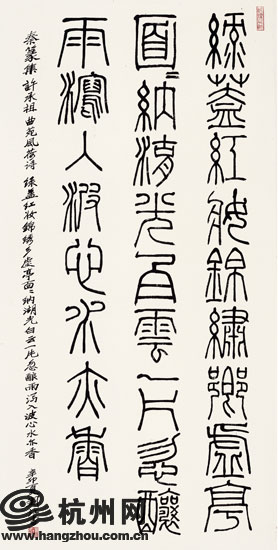 綠蓋紅妝錦繡鄉虛亭
面〻納湖光白雲一片忽釀
雨瀉入波心水亦香
秦篆集許承祖曲苑風荷詩 綠蓋紅妝錦綉鄉虛亭面〻納湖光白云一片忽釀雨瀉入波心水亦香 辛卯
杭州网
www.hangzhou.com.cn